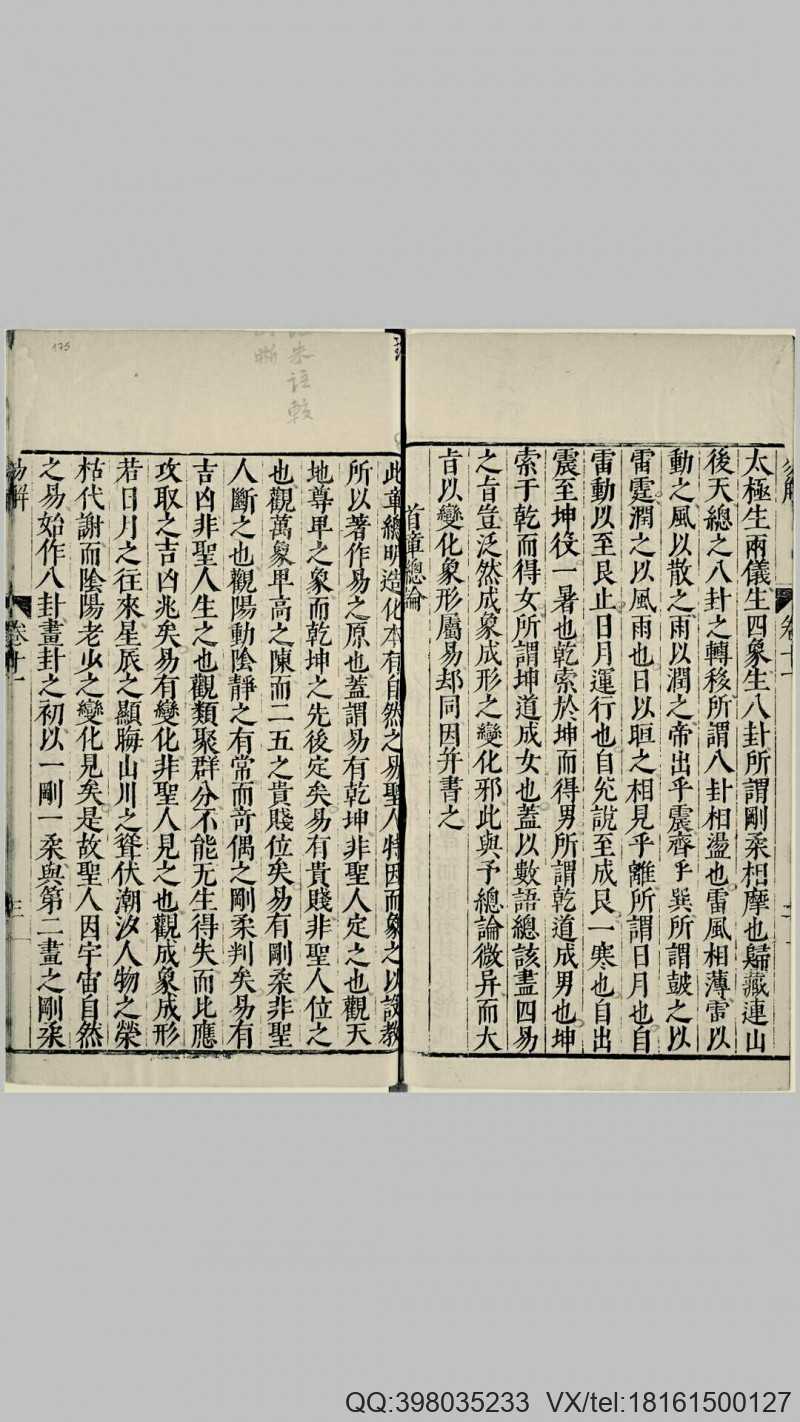 太極生兩儀生四象生八卦所謂剛柔相摩也歸藏連山
後天總之八卦之轉移所謂八卦相盪也雷風相薄雷以
動之風以散之雨以潤之帝出乎震齊乎巽所謂鼓之以
雷霆潤之以風雨也日以晅之相見乎離所謂日月也自
雷動以至艮止日月運行也自兊說至成艮一寒也自出
震至坤役一暑也乾索於坤而得男所謂乾道成男也坤
索于乾而得女所謂坤道成女也蓋以數語總該畫四易
之旨豈泛然成象成形之變化邪此與予總論微异而大
旨以變化象形屬易却同因并書之
首章總論
此章總明造化本有自然之易聖人特因而象之以設教
所以著作易之原也蓋謂易有乾坤非聖人定之也觀天
地尊卑之象而乾坤之先後定矣易有貴賤非聖人位之
也觀萬象卑高之陳而二五之貴賤位矣易有剛柔非聖
人斷之也觀陽動陰靜之有常而奇偶之剛柔判矣易有
吉凶非聖人生之也觀類聚群分不能无生得失而比應
攻取之吉凶兆矣易有變化非聖人見之也觀成象成形
若日月之往來星辰之顯晦山川之聳伏潮汐人物之榮
枯代謝而陰陽老少之變化見矣是故聖人因宇宙自然
之易始作八卦畫卦之初以一剛一柔與第二畫之剛柔
卷十一
三
175
QQ:398035233 VX/tel:18161500127